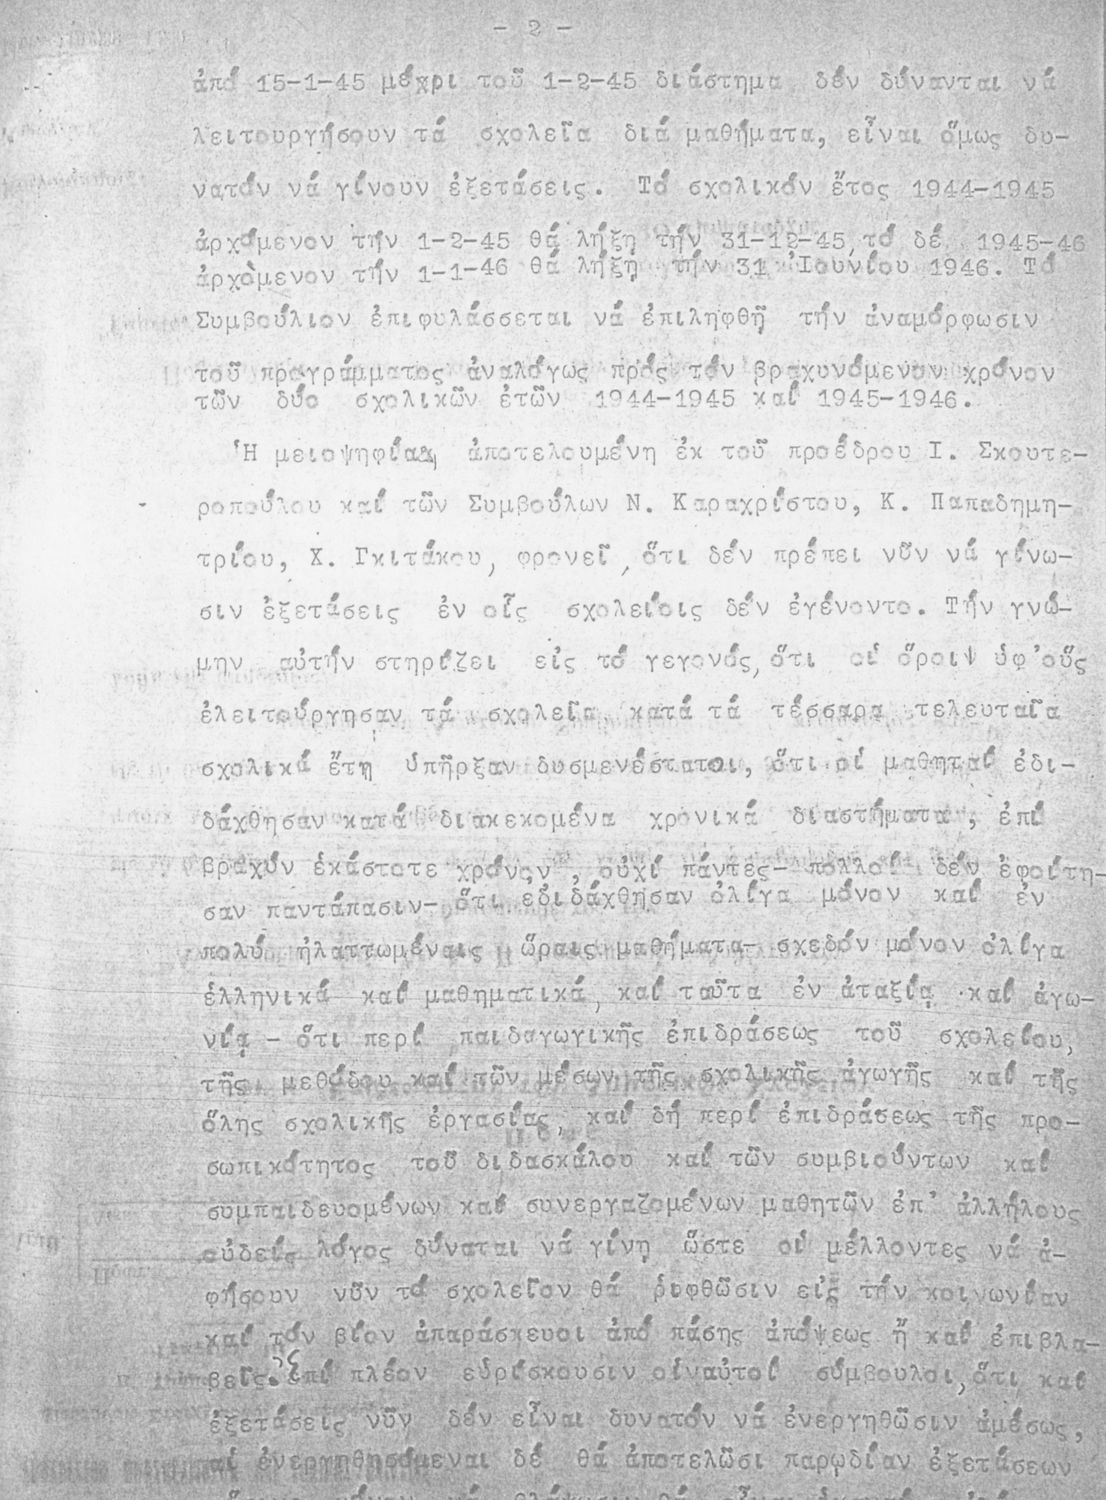 - 2 -
ἀπό 15-1-45 μέχρι τοῦ 1-2-45 διάστημα δέν δύνανται νά
λειτουργήσουν τά σχολεῖα διά μαθήματα, εἶναι ὅμως δυ-
νατόν νά γίνουν ἐξετάσεις. Τό σχολικόν ἔτος 1944-1945
ἀρχόμενον τήν 1-2-45 θά λήξῃ τήν 31-12-45, τό δέ 1945-46
ἀρχόμενον τήν 1-1-46 θά λήξῃ τήν 31 Ἰουνίου 1946. Τό
Συμβούλιον ἐπιφυλάσσεται νά ἐπιληφθῇ τήν ἀναμόρφωσιν
τοῦ προγράμματος ἀναλόγως πρός τόν βραχυνόμενον χρόνον
τῶν δύο σχολικῶν ἐτῶν 1944-1945 καί 1945-1946.
Ἡ μειοψηφία, ἀποτελουμένη ἐκ τοῦ προέδρου Ι. Σκουτε-
ροπούλου καί τῶν Συμβούλων Ν. Καραχρίστου, Κ. Παπαδημη-
τρίου, Χ. Γκιτάκου, φρονεῖ, ὅτι δέν πρέπει νῦν νά γίνω-
σιν ἐξετάσεις ἐν οἷς σχολείοις δέν ἐγένοντο. Τήν γνώ-
μην αὐτήν στηρίζει εἰς τό γεγονός, ὅτι οἱ ὅροιψ ὑφ'οὕς
ἐλειτούργησαν τά σχολεῖα κατά τά τέσσαρα τελευταῖα
σχολικά ἔτη ὑπῆρξαν δυσμενέστατοι, ὅτι οἱ μαθηταί ἐδι-
δάχθησαν κατά διακεκομένα χρονικά διαστήματα, ἐπί
βραχύν ἑκάστοτε χρόνον, οὐχί πάντες- πολλοί δέν ἐφοίτη-
σαν παντάπασιν- ὅτι ἐδιδάχθησαν ὀλίγα μόνον καί ἐν
πολύ ἠλαττωμέναις ὥραις μαθήματα- σχεδόν μόνον ὀλίγα
ἑλληνικά καί μαθηματικά, καί ταῦτα ἐν ἀταξίᾳ καί ἀγω-
νίᾳ - ὅτι περί παιδαγωγικῆς ἐπιδράσεως τοῦ σχολείου,
τῆς μεθόδου καί τῶν μέσων τῆς σχολικῆς ἀγωγῆς καί τῆς
ὅλης σχολικῆς ἐργασίας, καί δή περί ἐπιδράσεως τῆς προ-
σωπικότητος τοῦ διδασκάλου καί τῶν συμβιούντων καί
συμπαιδευομένων καί συνεργαζομένων μαθητῶν ἐπ' ἀλλήλους
οὐδείς λόγος δύναται νά γίνῃ ὥστε οἱ μέλλοντες νά ἀ-
φήσουν νῦν τό σχολεῖον θά ῥιφθῶσιν εἰς τήν κοινωνίαν
καί τόν βίον ἀπαράσκευοι ἀπό πάσης ἀπόψεως ἤ καί ἐπιβλα-
βεῖς. Ἐπί πλέον εὑρίσκουσιν οἱναὐτοί σύμβουλοι, ὅτι καί
ἐξετάσεις νῦν δέν εἶναι δυνατόν νά ἐνεργηθῶσιν ἀμέσως,
αἱ ἐνεργηθησόμεναι δέ θά ἀποτελῶσι παρῳδίαν ἐξετάσεων